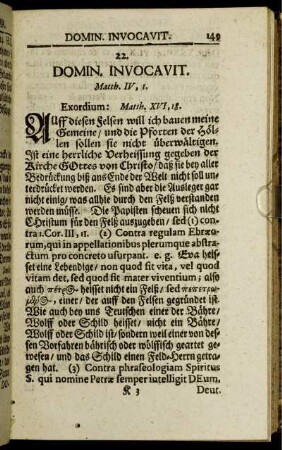 DOMIN. INVOCAVIT. 149
22.
DOMIN. INVOCAVIT.
Matth. IV, 1.
Exordium: Matth. XVI, 18.
AUff diesen Felsen will ich bauen meine
Gemeine / und die Pforten der Höl-
len sollen sie nicht überwältigen.
Ist eine herrliche Verheissung gegeben der
Kirche GOttes von Christo / daß sie bey aller
Bedrückung biß ans Ende der Welt nicht soll un-
terdrücket werden. Es sind aber die Ausleger gar
nicht einig / was allhie durch den Felß verstanden
werden müsse. Die Papisten scheuen sich nicht
CHristum für den Felß auszugeben / sed (1) con-
tra 1. Cor. III, 11. (2) Contra regulam Ebræo-
rum, qui in appellationibus plerumque abstra-
ctum pro concreto usurpant. e. g. Eva heis-
set eine Lebendige / non quod sit vita, vel quod
vitam det, sed quod sit mater viventium; also
auch πέτρα heisset nicht ein Felß / sed πεπετρω-
μένος , einer / der auff den Felsen gegründet ist.
Wie auch bey uns Teutschen einer der Bähre /
Wolff oder Schild heisset / nicht ein Bähre /
Wolff oder Schild ist / sondern weil einer von des-
sen Vorfahren bährisch oder wölffisch geartet ge-
wesen / und das Schild einen Feld-Herrn getra-
gen hat. (3) Contra phraseologiam Spiritus
S. qui nomine Petræ semper intelligit DEum,
K 3 Deut.